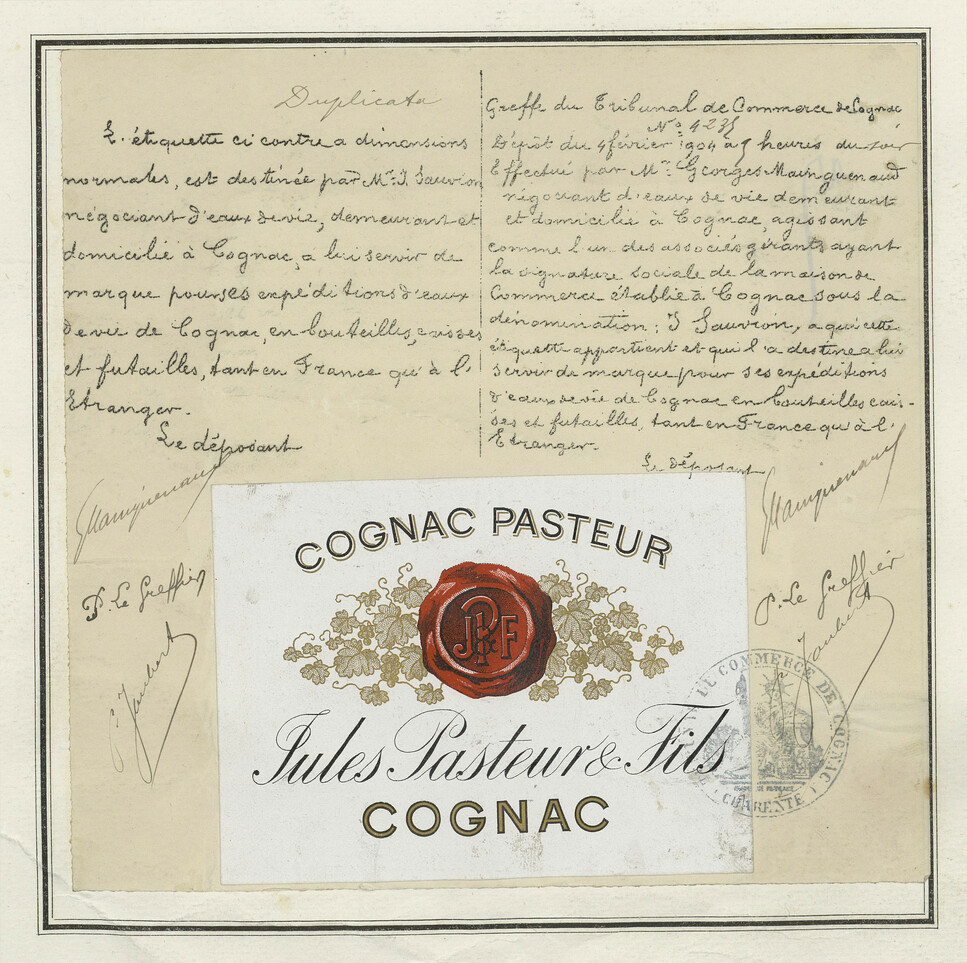 Duplicata
L'étiquette ci contre a dimensions
normales, est destinée par Mr. J. Sauvion
négociant d'eaux de vie, demeurant et
domicilié à Cognac, a lui servir de
marque pour ses expéditions d'eaux
de vie de Cognac, en bouteilles, caisses
et futailles, tant en France qu'à l'
Etranger.
Le déposant
GMainguenaud
P. Le Greffier
Jaubert
Greffe du Tribunal de Commerce de Cognac
No. 4235
Dépôt du 4 février 1904 à 5 heures du soir
Effectué par Mr. Georges Mainguenaud
négociant d'eaux de vie demeurant
et domicilié à Cognac, agissant
comme l'un des associés gérants ayant
la signature sociale de la maison de
Commerce établie à Cognac sous la
dénomination: J Sauvion, a qui cette
étiquette appartient et qui l'a destine a lui
servir de marque pour ses expéditions
d'eaux de vie de Cognac en bouteilles cais-
ses et futailles, tant en France qu'à l'
Etranger.
Le déposant
GMainguenaud
P. Le Greffier
Jaubert
COGNAC PASTEUR
JP&F
Jules Pasteur & Fils
COGNAC
DU COMMERCE DE COGNAC
CHARENTE